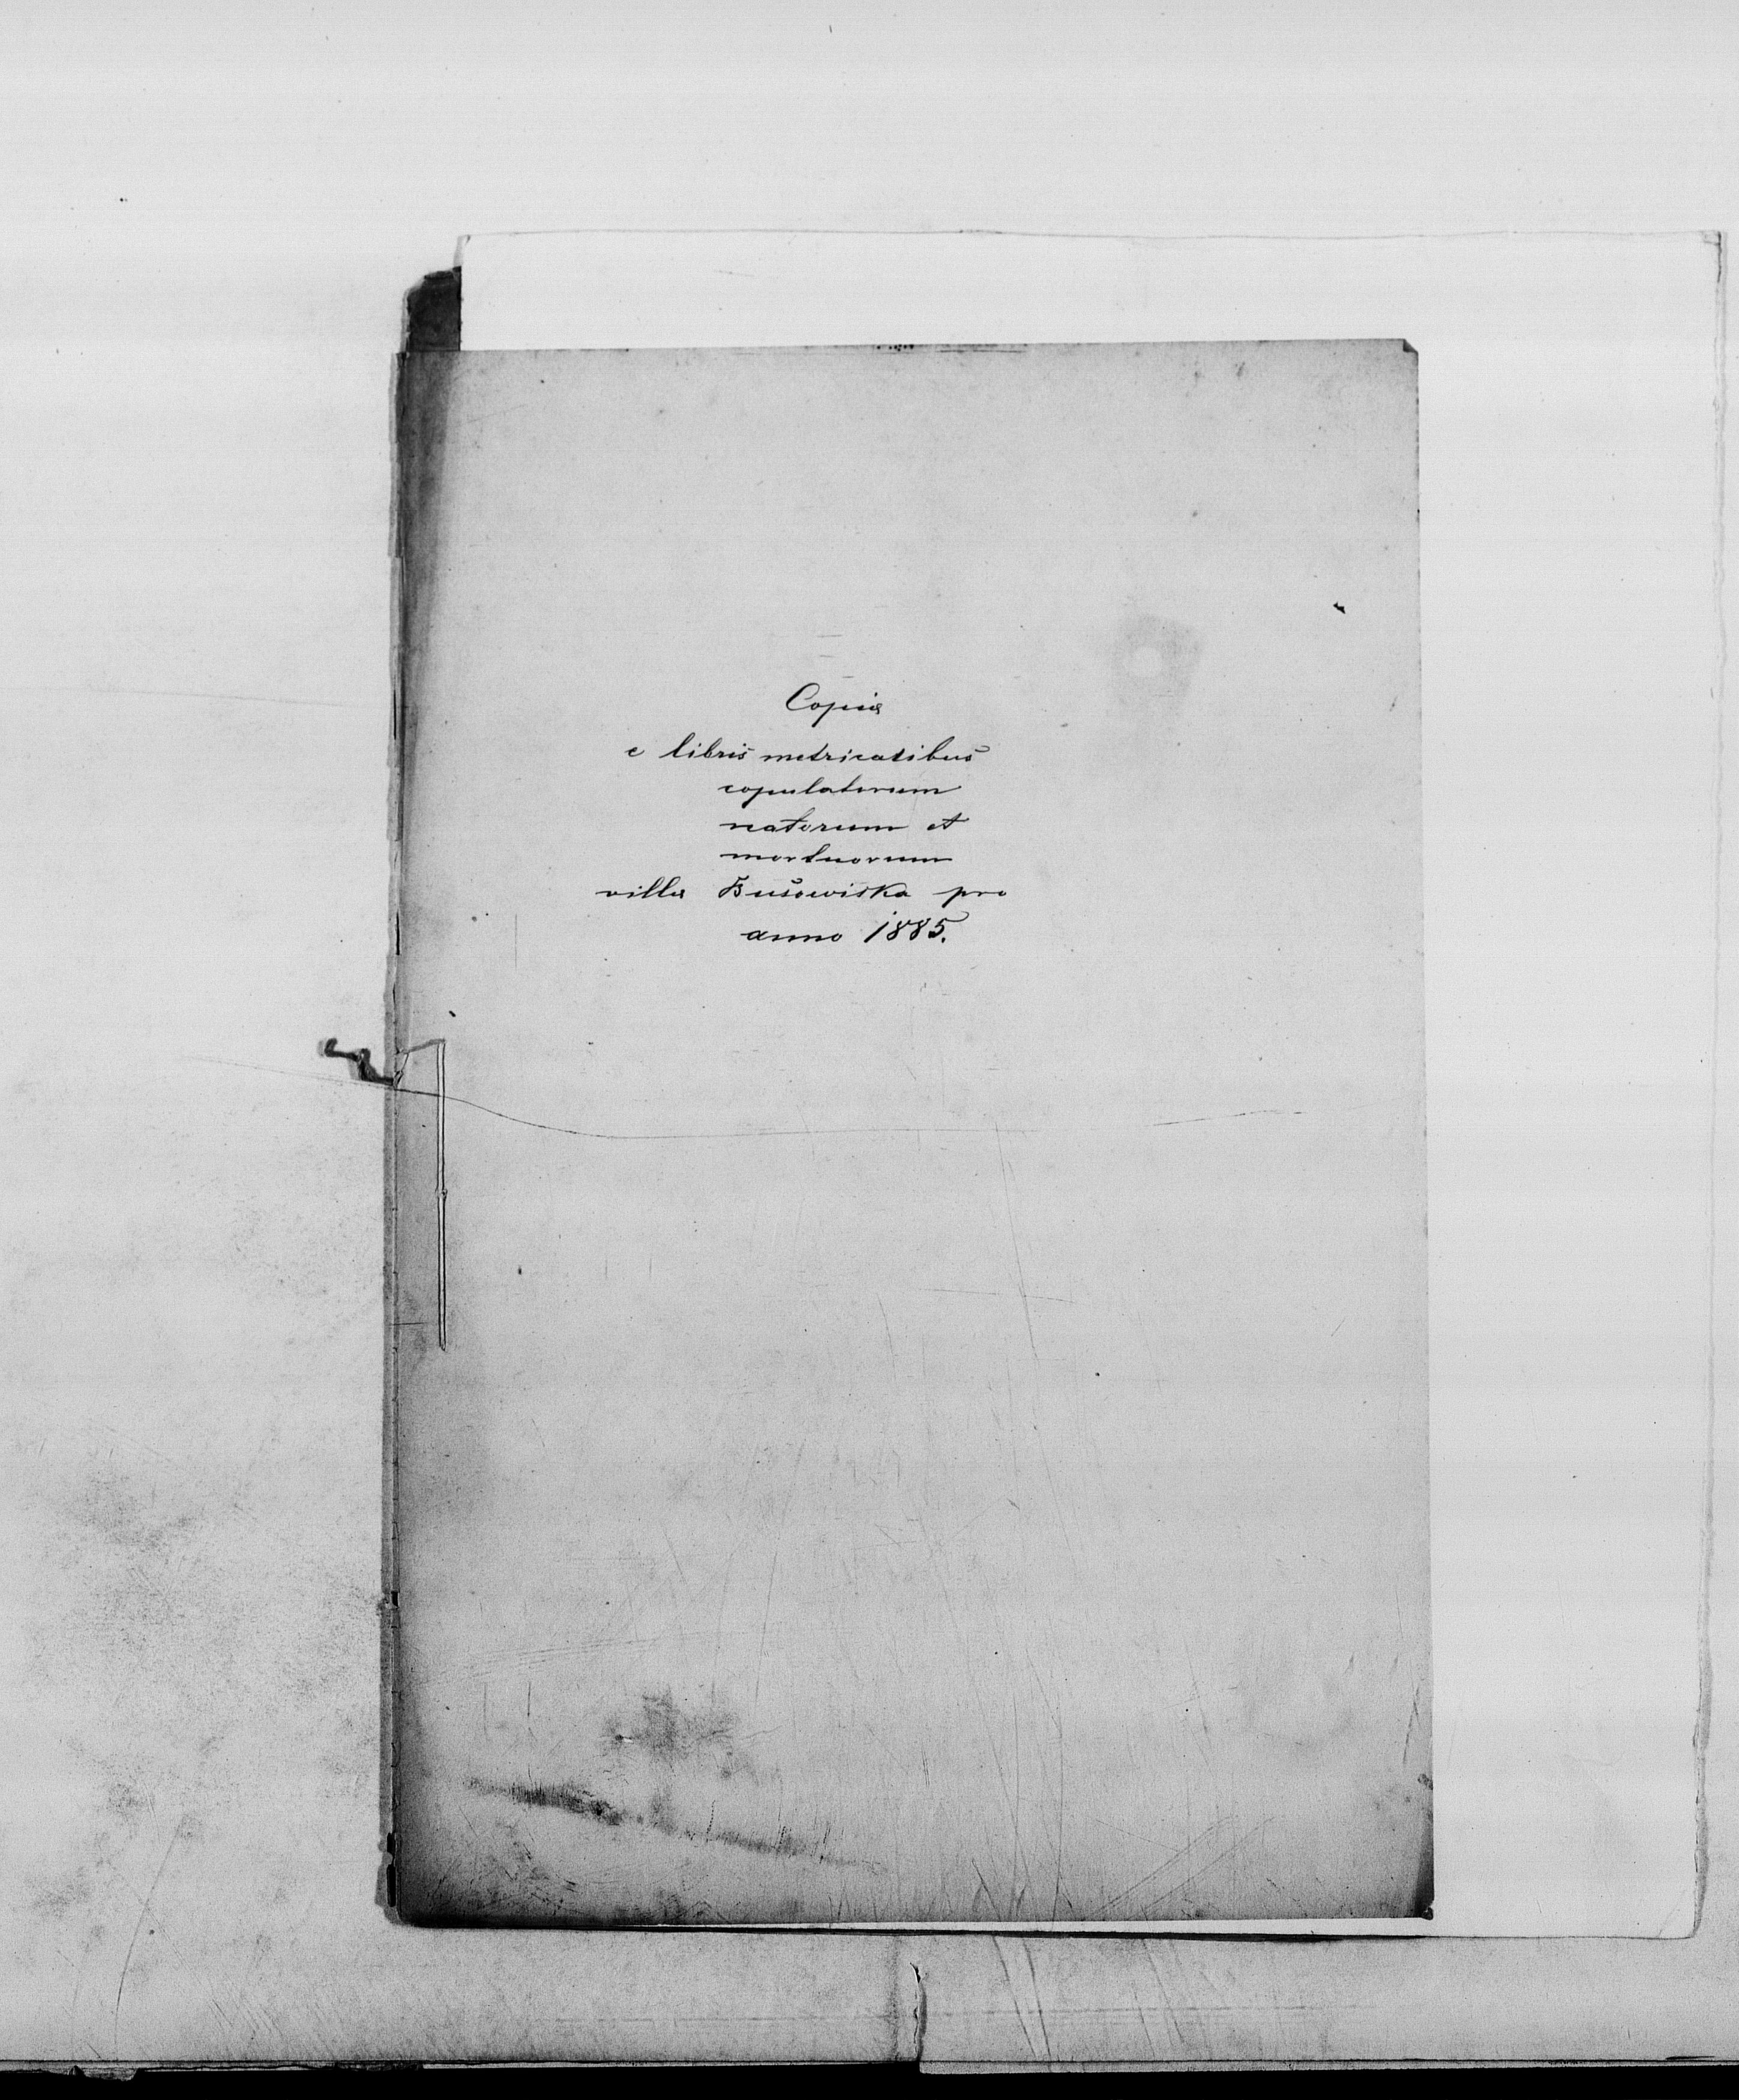 Copia
e libris metricatibus
copulatorum
natorum et
mortuorum
villa Busowiska pro
anno 1885.